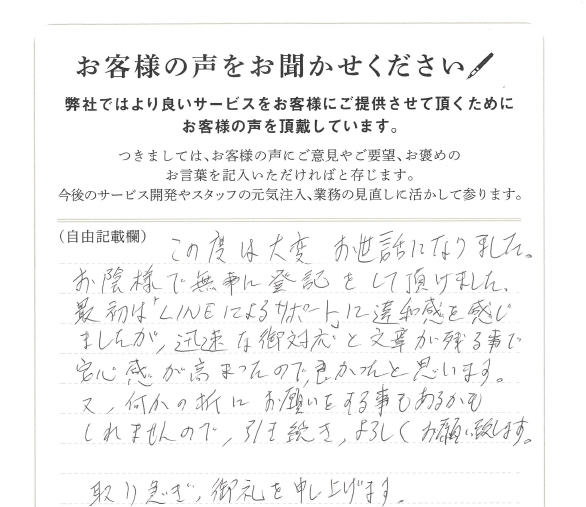 お客様の声をお聞かせください
弊社ではより良いサービスをお客様にご提供させて頂くために
お客様の声を頂戴しています。
つきましては、お客様の声にご意見やご要望、お褒めの
お言葉を記入いただければと存じます。
今後のサービス開発やスタッフの元気注入、業務の見直しに活かして参ります。
(自由記載欄)
この度は大変 お世話になりました。
お陰様で無事に登記をして頂けました。
最初は「LINEによるサポート」に違和感を感じ
ましたが、迅速な御対応と文章が残る事で
安心感が高まったので、良かったと思います。
又、何かの折にお願いをする事もあるかも
しれませんので、引き続き、よろしくお願い致します。
取り急ぎ、御礼を申し上げます。